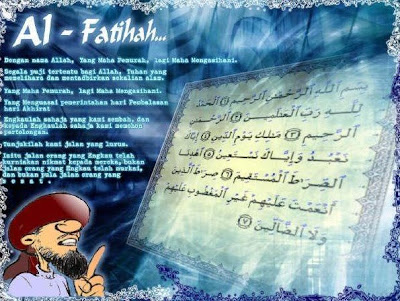 Al - Fatihah...
Dengan nama Allah, Yang Maha Pemurah, lagi Maha Mengasihani.
Segala puji tertentu bagi Allah, Tuhan yang
memelihara dan mentadbirkan sekalian alam.
Yang Maha Pemurah, lagi Maha Mengasihani.
Yang Menguasai pemerintahan hari Pembalasan
hari Akhirat
Engkaulah sahaja yang kami sembah, dan
kepada Engkaulah sahaja kami memohon
pertolongan.
Tunjukilah kami jalan yang lurus.
Iaitu jalan orang yang Engkau telah
kurniakan nikmat kepada mereka, bukan
jalan orang yang Engkau telah murkai,
dan bukan pula jalan orang yang
sesat.
بِسْمِ اللَّهِ الرَّحْمَٰنِ الرَّحِيمِ ۝١ الْحَمْدُ
لِلَّهِ رَبِّ الْعَٰلَمِينَ ۝٢ الرَّحْمَٰنِ
الرَّحِيمِ ۝٣ مَٰلِكِ يَوْمِ الدِّينِ ۝٤ إِيَّاكَ
نَعْبُدُ وَإِيَّاكَ نَسْتَعِينُ ۝٥ اهْدِنَا
الصِّرَٰطَ الْمُسْتَقِيمَ ۝٦ صِرَٰطَ الَّذِينَ
أَنْعَمْتَ عَلَيْهِمْ غَيْرِ الْمَغْضُوبِ عَلَيْهِمْ
وَلَا الضَّالِّينَ ۝٧